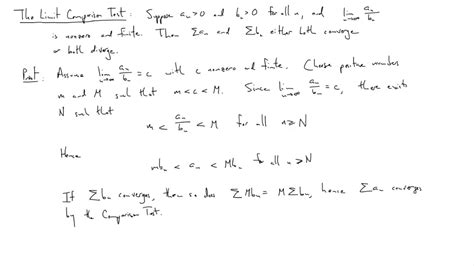 The Limit Comparison Test: Suppose aₙ>0 and bₙ>0 for all n, and lim n→∞ aₙ/bₙ
is nonzero and finite. Then Σaₙ and Σbₙ either both converge
or both diverge.
Proof: Assume lim n→∞ aₙ/bₙ = c with c nonzero and finite. Choose positive numbers
m and M such that m < c < M. Since lim n→∞ aₙ/bₙ = c, there exists
N such that
m < aₙ/bₙ < M for all n ≥ N
Hence
mbₙ < aₙ < Mbₙ for all n ≥ N
If Σbₙ converges, then so does ΣMbₙ = MΣbₙ, hence Σaₙ converges
by the Comparison Test.